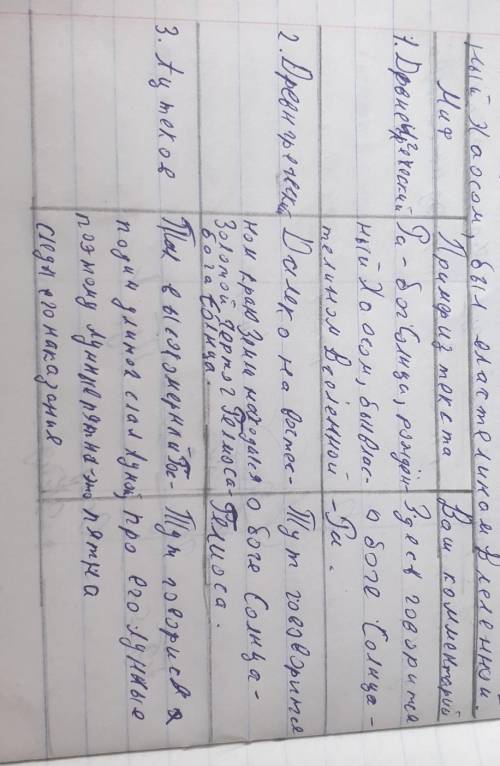 ный Хаосом, был властелином Вселенной.
Миф
Пример из текста
Ваш комментарий
1. Древнегреческий
Ра - бог Солнца, рождён-
ный Хаосом, был влас-
телином Вселенной
Здесь говорится
о боге Солнца -
- Ра.
2. Древнегреческий
Далеко на восточ-
ном краю Земли находился
Золотой чертог Гелиоса -
бога Солнца.
Тут говорится
о боге Солнца -
Гелиоса.
3. Ацтеков
Так высокомерный Го-
подин длинов стал Луной,
поэтому лунные пятна - это
следы его наказания
Тут говорится
про его лунные
пятна